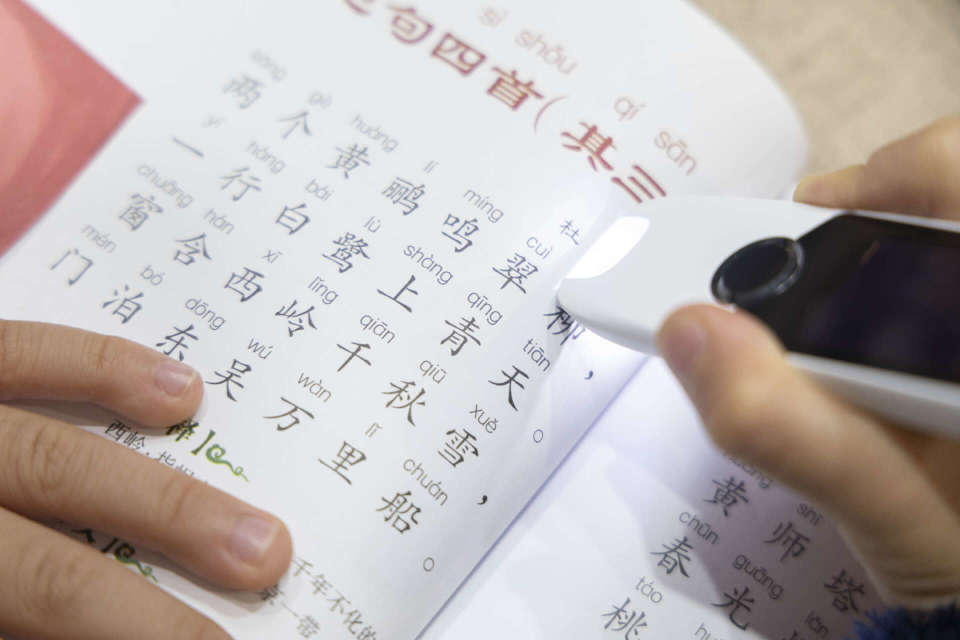 sì shǒu qí sān
句四首(其三
杜
liǎng gè huáng lí míng cuì
两个黄鹂鸣翠柳,
yì háng bái lù shàng qīng tiān
一行白鹭上青天。
chuāng hán xī lǐng qiān qiū xuě
窗含西岭千秋雪,
mén bó dōng wú wàn lǐ chuán
门泊东吴万里船。
释】
西岭,指
千年不化的
一带
huáng shī
黄师塔
chūn guāng
春光
táo
桃